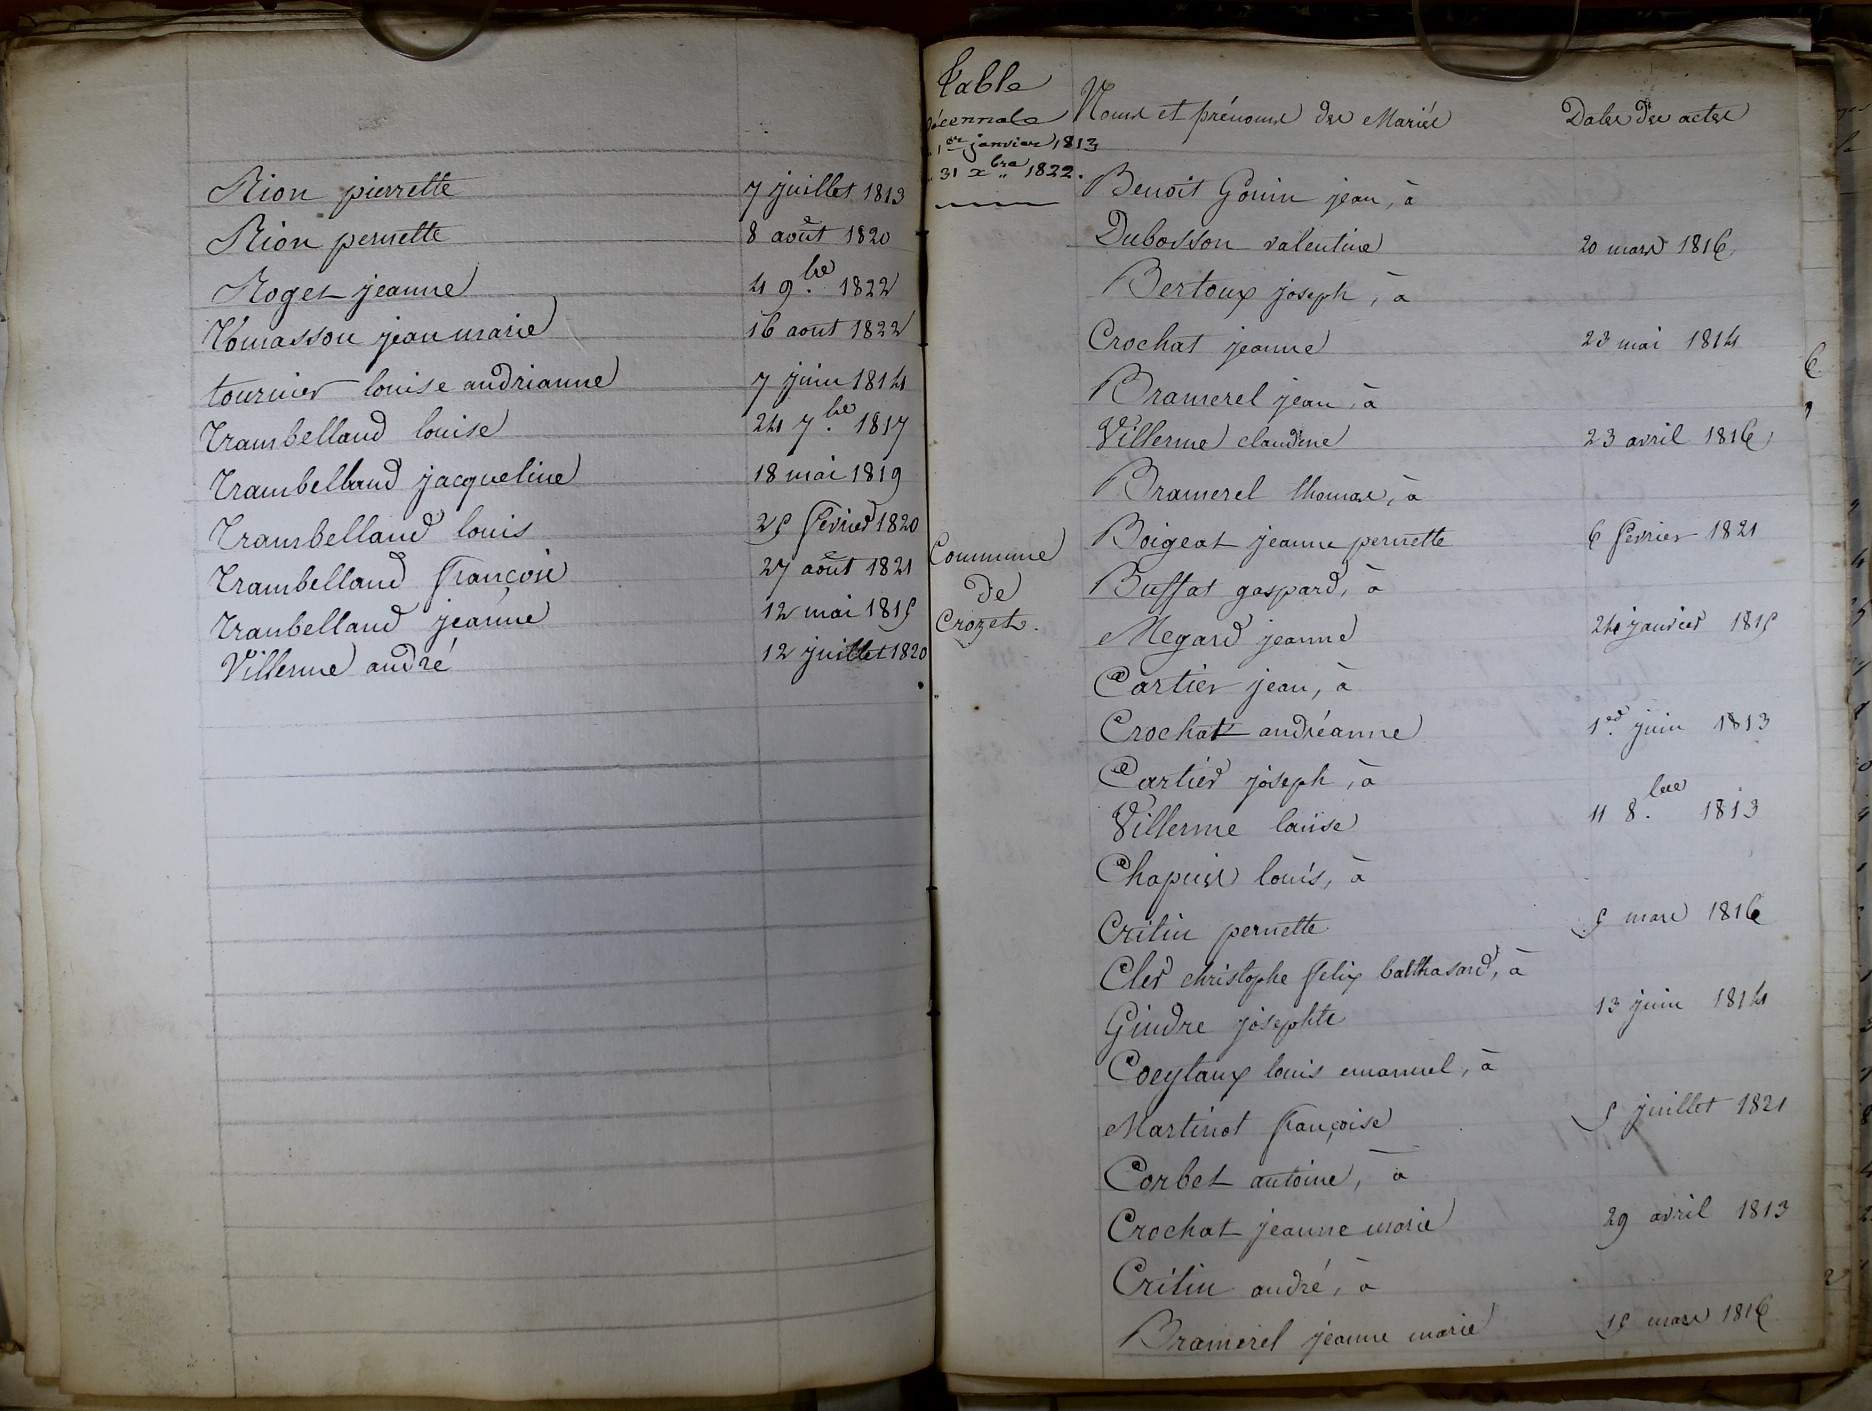 Rion pierrette 7 juillet 1813
Rion pernette 8 août 1820
Roget jeanne 4 9.bre 1822
Thomasson jean marie 16 août 1822
tournier louise andrianne 7 juin 1814
Trambelland louise 24 7.bre 1817
Trambelland jacqueline 18 mai 1819
Trambelland louis 25 février 1820
Trambelland françois 27 août 1821
Trambelland jeanne 12 mai 1815
Villerme andré 12 juillet 1820
Table
décennale
1er janvier 1813
31 xbre 1822.
Commune
de
Crozet.
Noms et prénoms des Mariés Dates des actes
Benoit Gonin jean, à
Dubosson valentine 20 mars 1816
Bertoux joseph, à
Crochat jeanne 23 mai 1814
Bramerel jean, à
Villerme claudine 23 avril 1816
Bramerel thomas, à
Boigeat jeanne pernette 6 février 1821
Buffat gaspard, à
Megard jeanne 24 janvier 1815
Cartier jean, à
Crochat andréanne 1er juin 1813
Cartier joseph, à
Villerme louise 11 8.bre 1813
Chapuis louis, à
Critin pernette 5 mars 1816
Cler christophe felix balthasard, à
Gindre josephte 13 juin 1814
Coeytaux louis emanuel, à
Martinot françoise 5 juillet 1821
Corbet antoine, à
Crochat jeanne marie 29 avril 1813
Critin andré, à
Bramerel jeanne marie 15 mars 1816